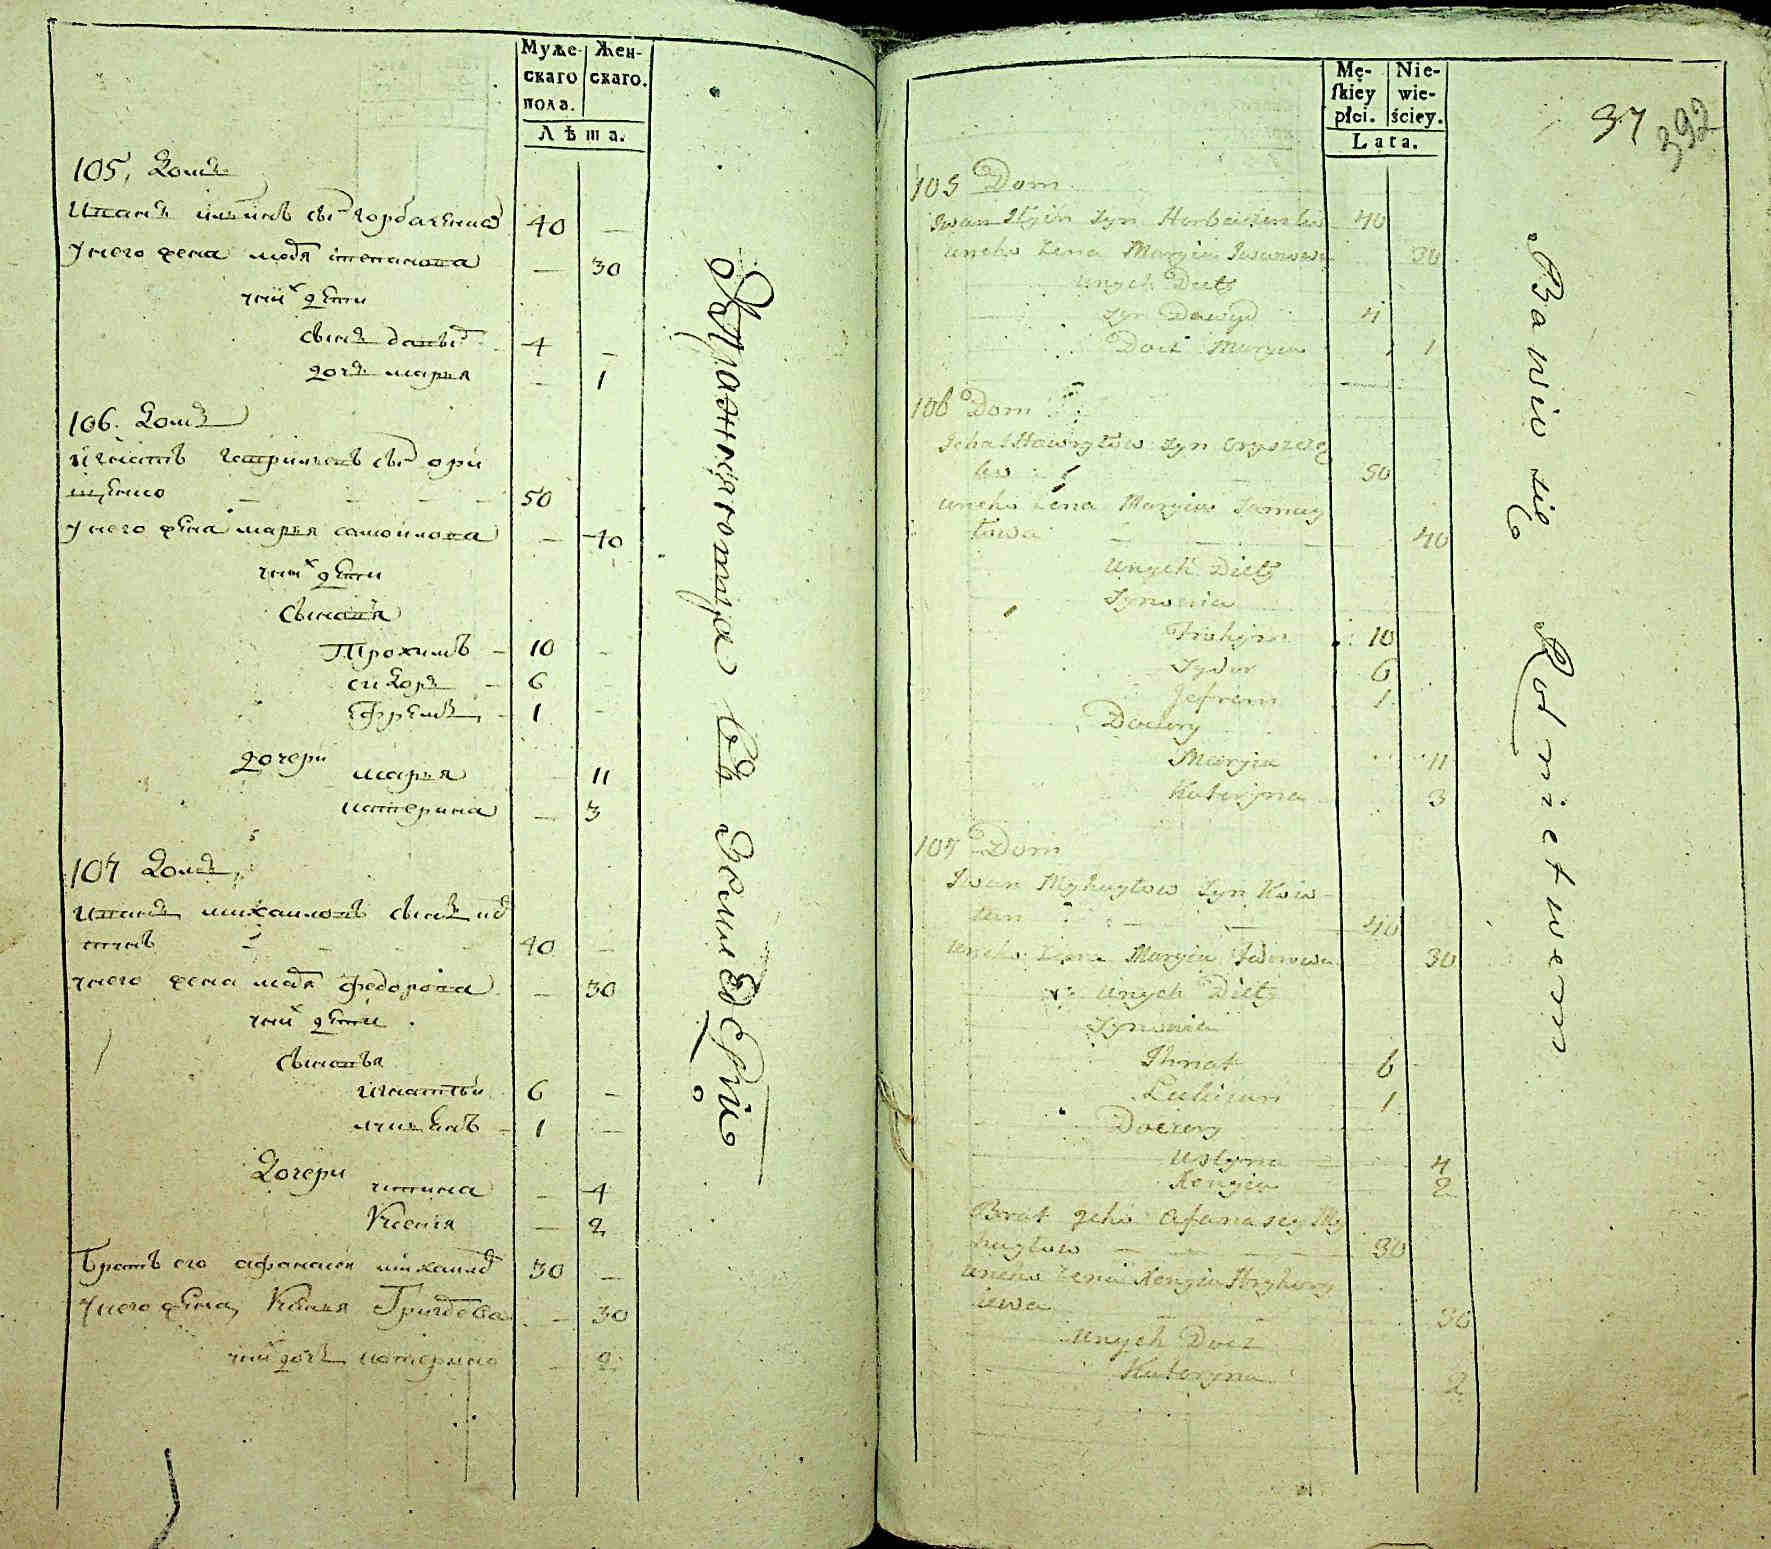 Муже-
скаго
пола.
Жен-
скаго.
Лѣта.
105, Домъ
Иванъ Ильинъ сынъ горбаченко 40 —
У него жена марья степанова — 30
у них дети
сынъ давыд 4 —
дочь марья — 1
106. Домъ
Игнатъ Гавриловъ сынъ ори
щенко 50
У него жена марья самойлова — 40
у них дети
Сыновья
Трохимъ — 10 —
сидоръ — 6 —
ефремъ — 1 —
Дочери
марья — 11
катерина — 3
107 Домъ
Иванъ михайловъ сынъ кв
тинъ 40 —
у него жена марья федорова — 30
у них дети
Сыновья
игнатьи 6 —
1 —
Дочери
устина — 4
Ксения — 2
Братъ его афанасей михайлов 30 —
У него жена Ксения Григорева — 30
у них дочь катерина — 2
Упражняютца въ Земледелии
Mę-
skiey
płci.
Nie-
wie-
ściey.
Lata.
37
392
105 Dom
Iwan Iljin Syn Horbaczenko 40
uneho Żena Maryia 30
unych Diety
Syn Dawyd 4
Docz Maryia 1
106 Dom
Ihnat Hawryłow Syn Oryszcze
ko 50
uneho Żena Maryia Samuy
łowa 40
unych Diety
Synowia
Trohym 10
Sydor 6
Jefrem 1
Doczery
Maryia 11
Kateryna 3
107 Dom
Iwan Myhayłow Syn Kwi
tun 40
uneho Żena Maryia Fedorowa 30
unych Diety
Synowia
Ihnat 6
Łukijan 1
Doczery
Ustyna 4
Xenyia 2
Brat jeho Afanasey My
hayłow 30
uneho Żena Xenyia Hryhory
iewa 30
unych Docz
Kateryna 2
Bawio się Rolnictwem